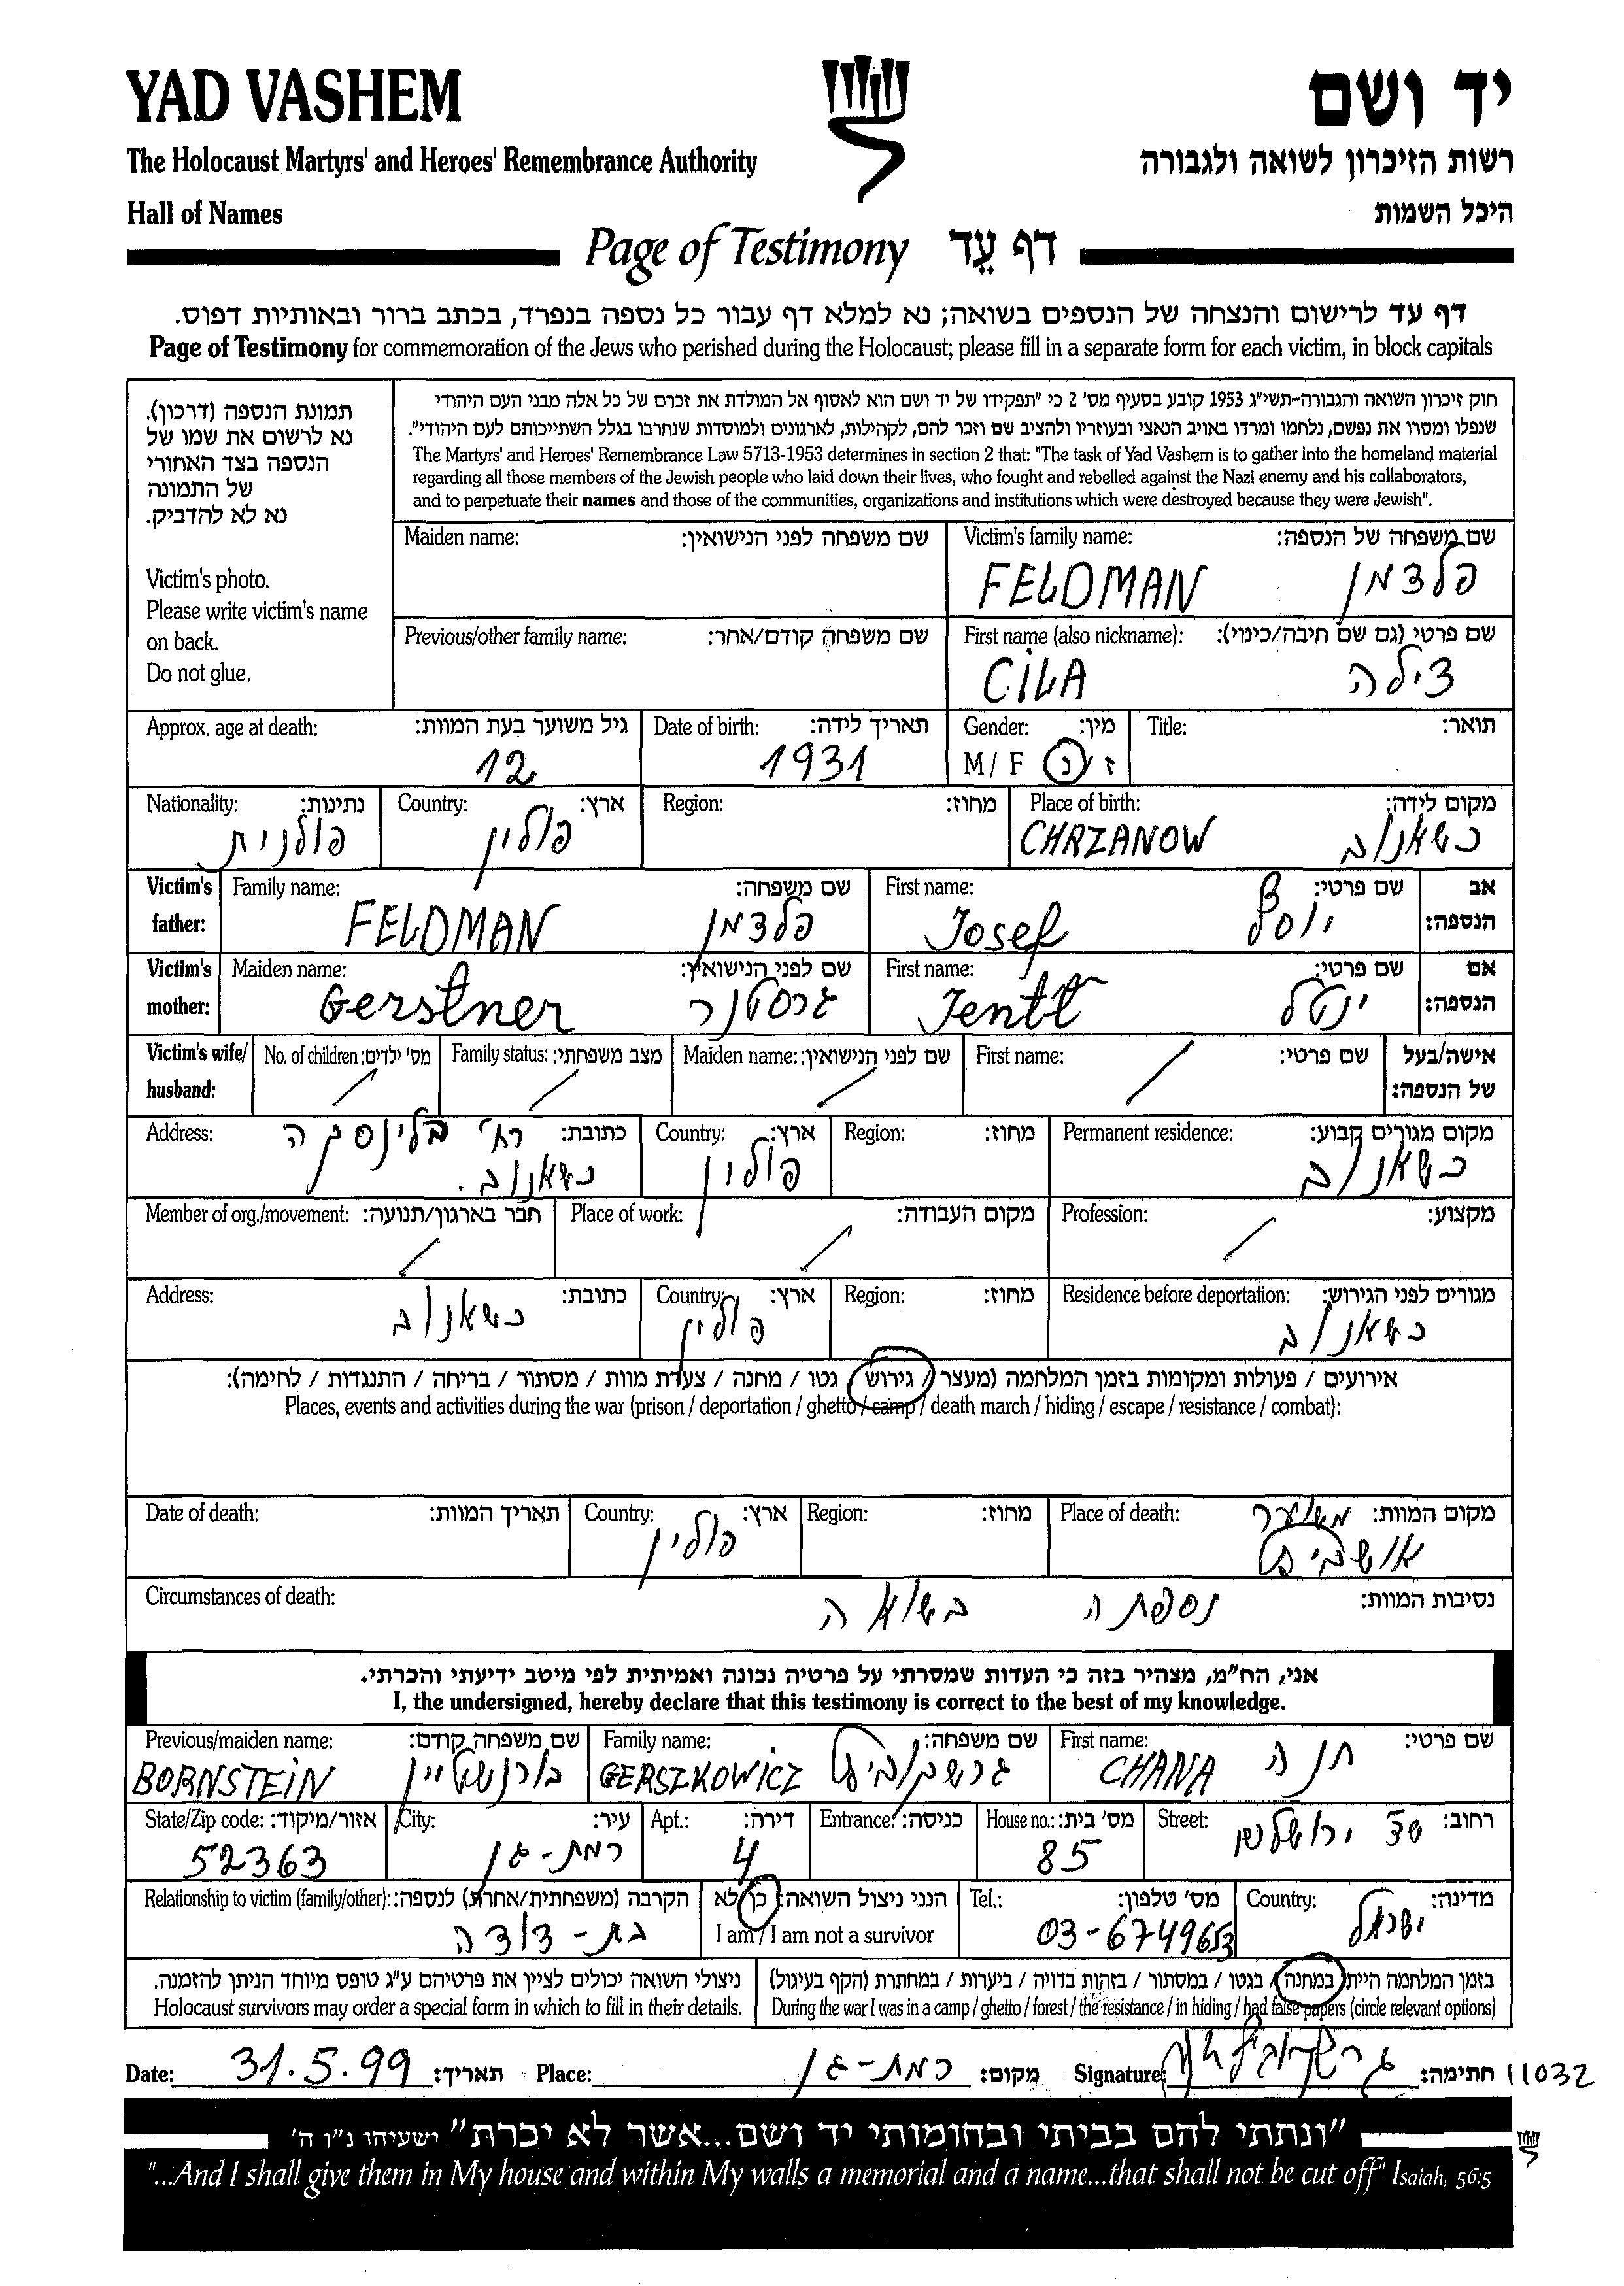 YAD VASHEM יד ושם
The Holocaust Martyrs' and Heroes' Remembrance Authority רשות הזיכרון לשואה ולגבורה
Hall of Names היכל השמות
Page of Testimony דף עֵד
דף עד לרישום והנצחה של הנספים בשואה; נא למלא דף עבור כל נספה בנפרד, בכתב ברור ובאותיות דפוס.
Page of Testimony for commemoration of the Jews who perished during the Holocaust; please fill in a separate form for each victim, in block capitals
תמונת הנספה (דרכון).
נא לרשום את שמו של
הנספה בצד האחורי
של התמונה
נא לא להדביק.
Victim's photo.
Please write victim's name
on back.
Do not glue.
חוק זיכרון השואה והגבורה-תשי״ג 1953 קובע בסעיף מס' 2 כי "תפקידו של יד ושם הוא לאסוף אל המולדת את זכרם של כל אלה מבני העם היהודי
שנפלו ומסרו את נפשם, נלחמו ומרדו באויב הנאצי ובעוזריו ולהציב שם וזכר להם, לקהילות, לארגונים ולמוסדות שנחרבו בגלל השתייכותם לעם היהודי".
The Martyrs' and Heroes' Remembrance Law 5713-1953 determines in section 2 that: "The task of Yad Vashem is to gather into the homeland material
regarding all those members of the Jewish people who laid down their lives, who fought and rebelled against the Nazi enemy and his collaborators,
and to perpetuate their names and those of the communities, organizations and institutions which were destroyed because they were Jewish".
Maiden name: שם משפחה לפני הנישואין: Victim's family name: שם משפחה של הנספה:
FELDMAN פלדמן
Previous/other family name: שם משפחה קודם/אחר: First name (also nickname): שם פרטי (גם שם חיבה/כינוי):
CILA צילה
Approx. age at death: גיל משוער בעת המוות: Date of birth: תאריך לידה: Gender: מין: Title: תואר:
12 1931 M / F ז / נ
Nationality: נתינות: Country: ארץ: Region: מחוז: Place of birth: מקום לידה:
פולנית פולין CHRZANOW כשאנוב
Victim's father: Family name: שם משפחה: First name: שם פרטי: אב הנספה:
FELDMAN פלדמן Josef יוסף
Victim's mother: Maiden name: שם לפני הנישואין: First name: שם פרטי: אם הנספה:
Gerstner גרסטנר Jentl ינטל
Victim's wife/ husband: No. of children: מס' ילדים: Family status: מצב משפחתי: Maiden name: שם לפני הנישואין: First name: שם פרטי: אישה/בעל של הנספה:
Address: כתובת: Country: ארץ: Region: מחוז: Permanent residence: מקום מגורים קבוע:
רח'
כשאנוב. פולין כשאנוב
Member of org./movement: חבר בארגון/תנועה: Place of work: מקום העבודה: Profession: מקצוע:
Address: כתובת: Country: ארץ: Region: מחוז: Residence before deportation: מגורים לפני הגירוש:
כשאנוב פולין כשאנוב
אירועים / פעולות ומקומות בזמן המלחמה (מעצר / גירוש / גטו / מחנה / צעדת מוות / מסתור / בריחה / התנגדות / לחימה):
Places, events and activities during the war (prison / deportation / ghetto / camp / death march / hiding / escape / resistance / combat):
Date of death: תאריך המוות: Country: ארץ: Region: מחוז: Place of death: מקום המוות: משוער
פולין אושביץ
Circumstances of death: נסיבות המוות:
נספתה בשואה
אני, הח״מ, מצהיר בזה כי העדות שמסרתי על פרטיה נכונה ואמיתית לפי מיטב ידיעתי והכרתי.
I, the undersigned, hereby declare that this testimony is correct to the best of my knowledge.
Previous/maiden name: שם משפחה קודם: Family name: שם משפחה: First name: שם פרטי:
BORNSTEIN בורנשטיין GERSZKOWICZ גרשקוביץ CHANA חנה
State/Zip code: אזור/מיקוד: City: עיר: Apt.: דירה: Entrance: כניסה: House no.: מס' בית: Street: רחוב:
52363 רמת-גן 4 85 שד ירושלים
Relationship to victim (family/other): הקרבה (משפחתית/אחרת) לנספה: הנני ניצול השואה: כן / לא Tel.: מס' טלפון: Country: מדינה:
בת-דודה I am / I am not a survivor 03-6749653 ישראל
ניצולי השואה יכולים לציין את פרטיהם ע״ג טופס מיוחד הניתן להזמנה. בזמן המלחמה הייתי במחנה / בגטו / במסתור / בזהות בדויה / ביערות / במחתרת (הקף בעיגול)
Holocaust survivors may order a special form in which to fill in their details. During the war I was in a camp / ghetto / forest / the resistance / in hiding / had false papers (circle relevant options)
Date: 31.5.99 תאריך: Place: רמת-גן מקום: Signature: חתימה: 11032
"ונתתי להם בביתי ובחומותי יד ושם...אשר לא יכרת" ישעיהו נ״ו ה'
"...And I shall give them in My house and within My walls a memorial and a name...that shall not be cut off" Isaiah, 56:5